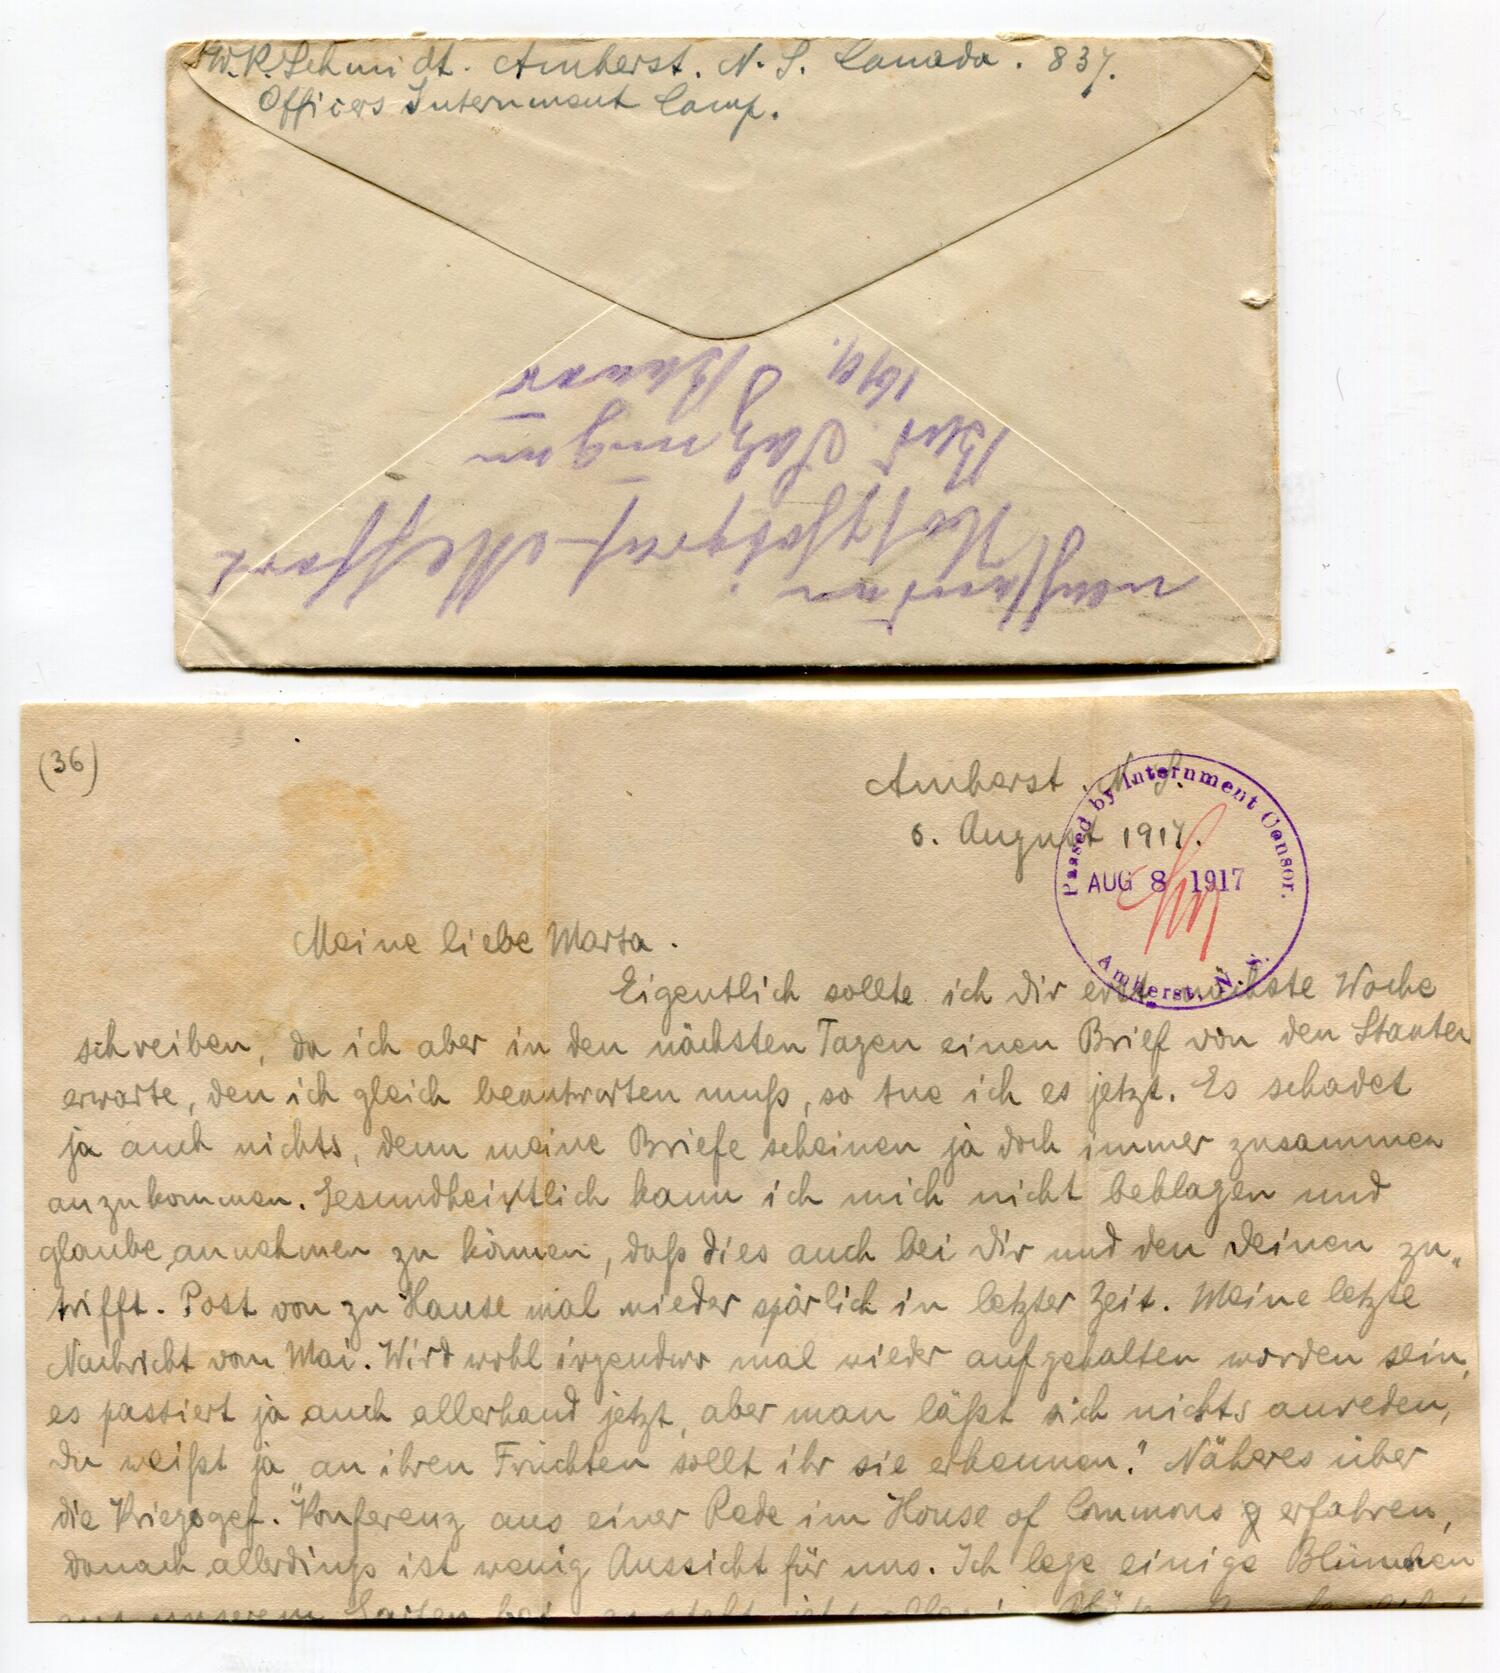 W.R. Schmidt. Amherst. N. S. Canada. 837.
Officers Internment Camp.
Bad Salzungen
Hofphotograf
(36)
Amherst, N.S.
6. August 1917.
Passed by Internment Censor.
AUG 8 1917
Amherst, N. S.
Meine liebe Marta.
Eigentlich sollte ich dir erst nächste Woche
schreiben, da ich aber in den nächsten Tagen einen Brief von den Staaten
erwarte, den ich gleich beantworten muß, so tue ich es jetzt. Es schadet
ja auch nichts, denn meine Briefe scheinen ja doch immer zusammen
anzukommen. Gesundheitlich kann ich mich nicht beklagen und
glaube annehmen zu können, daß dies auch bei dir und den deinen zu„
trifft. Post von zu Hause mal wieder spärlich in letzter Zeit. Meine letzte
Nachricht vom Mai. Wird wohl irgendwo mal wieder aufgehalten worden sein,
es passiert ja auch allerhand jetzt, aber man läßt sich nichts anreden,
du weißt ja „an ihren Früchten sollt ihr sie erkennen." Näheres über
die Kriegsgef. "Konferenz aus einer Rede im House of Commons erfahren,
danach allerdings ist wenig Aussicht für uns. Ich lege einige Blümchen
aus unserem Garten bei